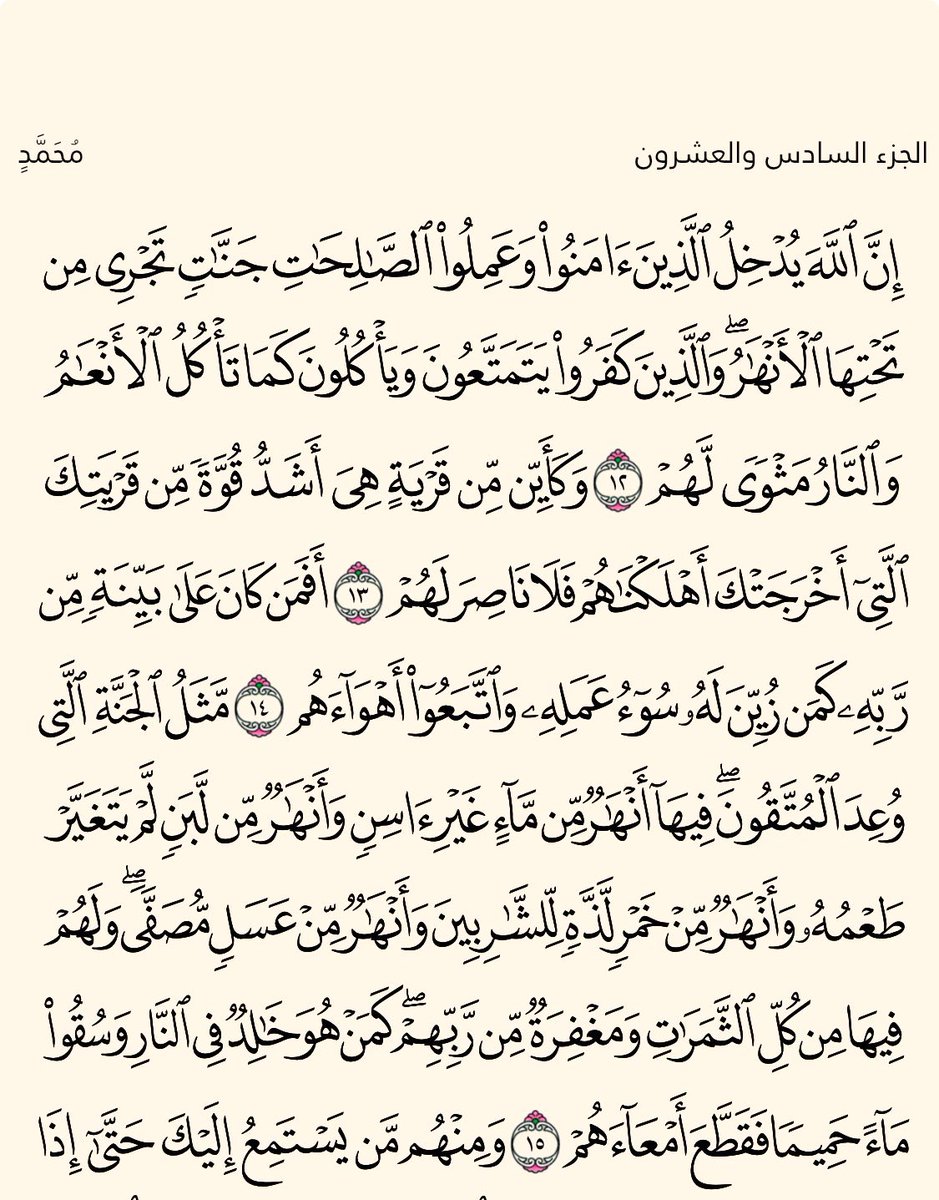 الجزء السادس والعشرون
مُحَمَّدٍ
إِنَّ ٱللَّهَ يُدۡخِلُ ٱلَّذِينَ ءَامَنُواْ وَعَمِلُواْ ٱلصَّٰلِحَٰتِ جَنَّٰتٖ تَجۡرِي مِن
تَحۡتِهَا ٱلۡأَنۡهَٰرُۖ وَٱلَّذِينَ كَفَرُواْ يَتَمَتَّعُونَ وَيَأۡكُلُونَ كَمَا تَأۡكُلُ ٱلۡأَنۡعَٰمُ
وَٱلنَّارُ مَثۡوٗى لَّهُمۡ ١٢ وَكَأَيِّن مِّن قَرۡيَةٍ هِيَ أَشَدُّ قُوَّةٗ مِّن قَرۡيَتِكَ
ٱلَّتِيٓ أَخۡرَجَتۡكَ أَهۡلَكۡنَٰهُمۡ فَلَا نَاصِرَ لَهُمۡ ١٣ أَفَمَن كَانَ عَلَىٰ بَيِّنَةٖ مِّن
رَّبِّهِۦ كَمَن زُيِّنَ لَهُۥ سُوٓءُ عَمَلِهِۦ وَٱتَّبَعُوٓاْ أَهۡوَآءَهُم ١٤ مَّثَلُ ٱلۡجَنَّةِ ٱلَّتِي
وُعِدَ ٱلۡمُتَّقُونَۖ فِيهَآ أَنۡهَٰرٞ مِّن مَّآءٍ غَيۡرِ ءَاسِنٖ وَأَنۡهَٰرٞ مِّن لَّبَنٖ لَّمۡ يَتَغَيَّرۡ
طَعۡمُهُۥ وَأَنۡهَٰرٞ مِّنۡ خَمۡرٖ لَّذَّةٖ لِّلشَّٰرِبِينَ وَأَنۡهَٰرٞ مِّنۡ عَسَلٖ مُّصَفّٗىۖ وَلَهُمۡ
فِيهَا مِن كُلِّ ٱلثَّمَرَٰتِ وَمَغۡفِرَةٞ مِّن رَّبِّهِمۡۖ كَمَنۡ هُوَ خَٰلِدٞ فِي ٱلنَّارِ وَسُقُواْ
مَآءً حَمِيمٗا فَقَطَّعَ أَمۡعَآءَهُمۡ ١٥ وَمِنۡهُم مَّن يَسۡتَمِعُ إِلَيۡكَ حَتَّىٰٓ إِذَا